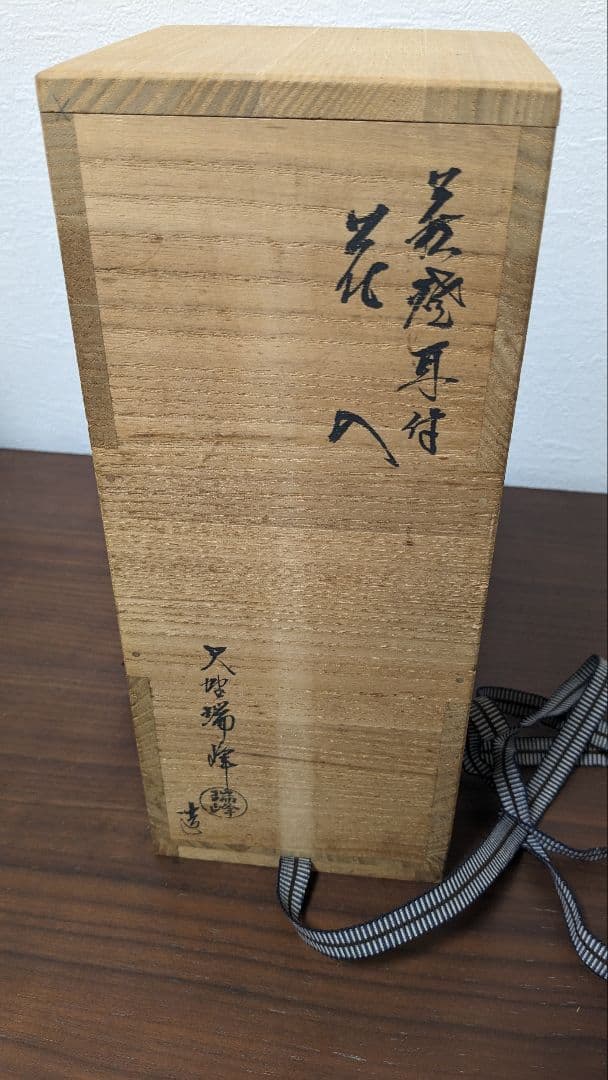 萩燒耳付
花入
大埜瑞峰
瑞峰
造